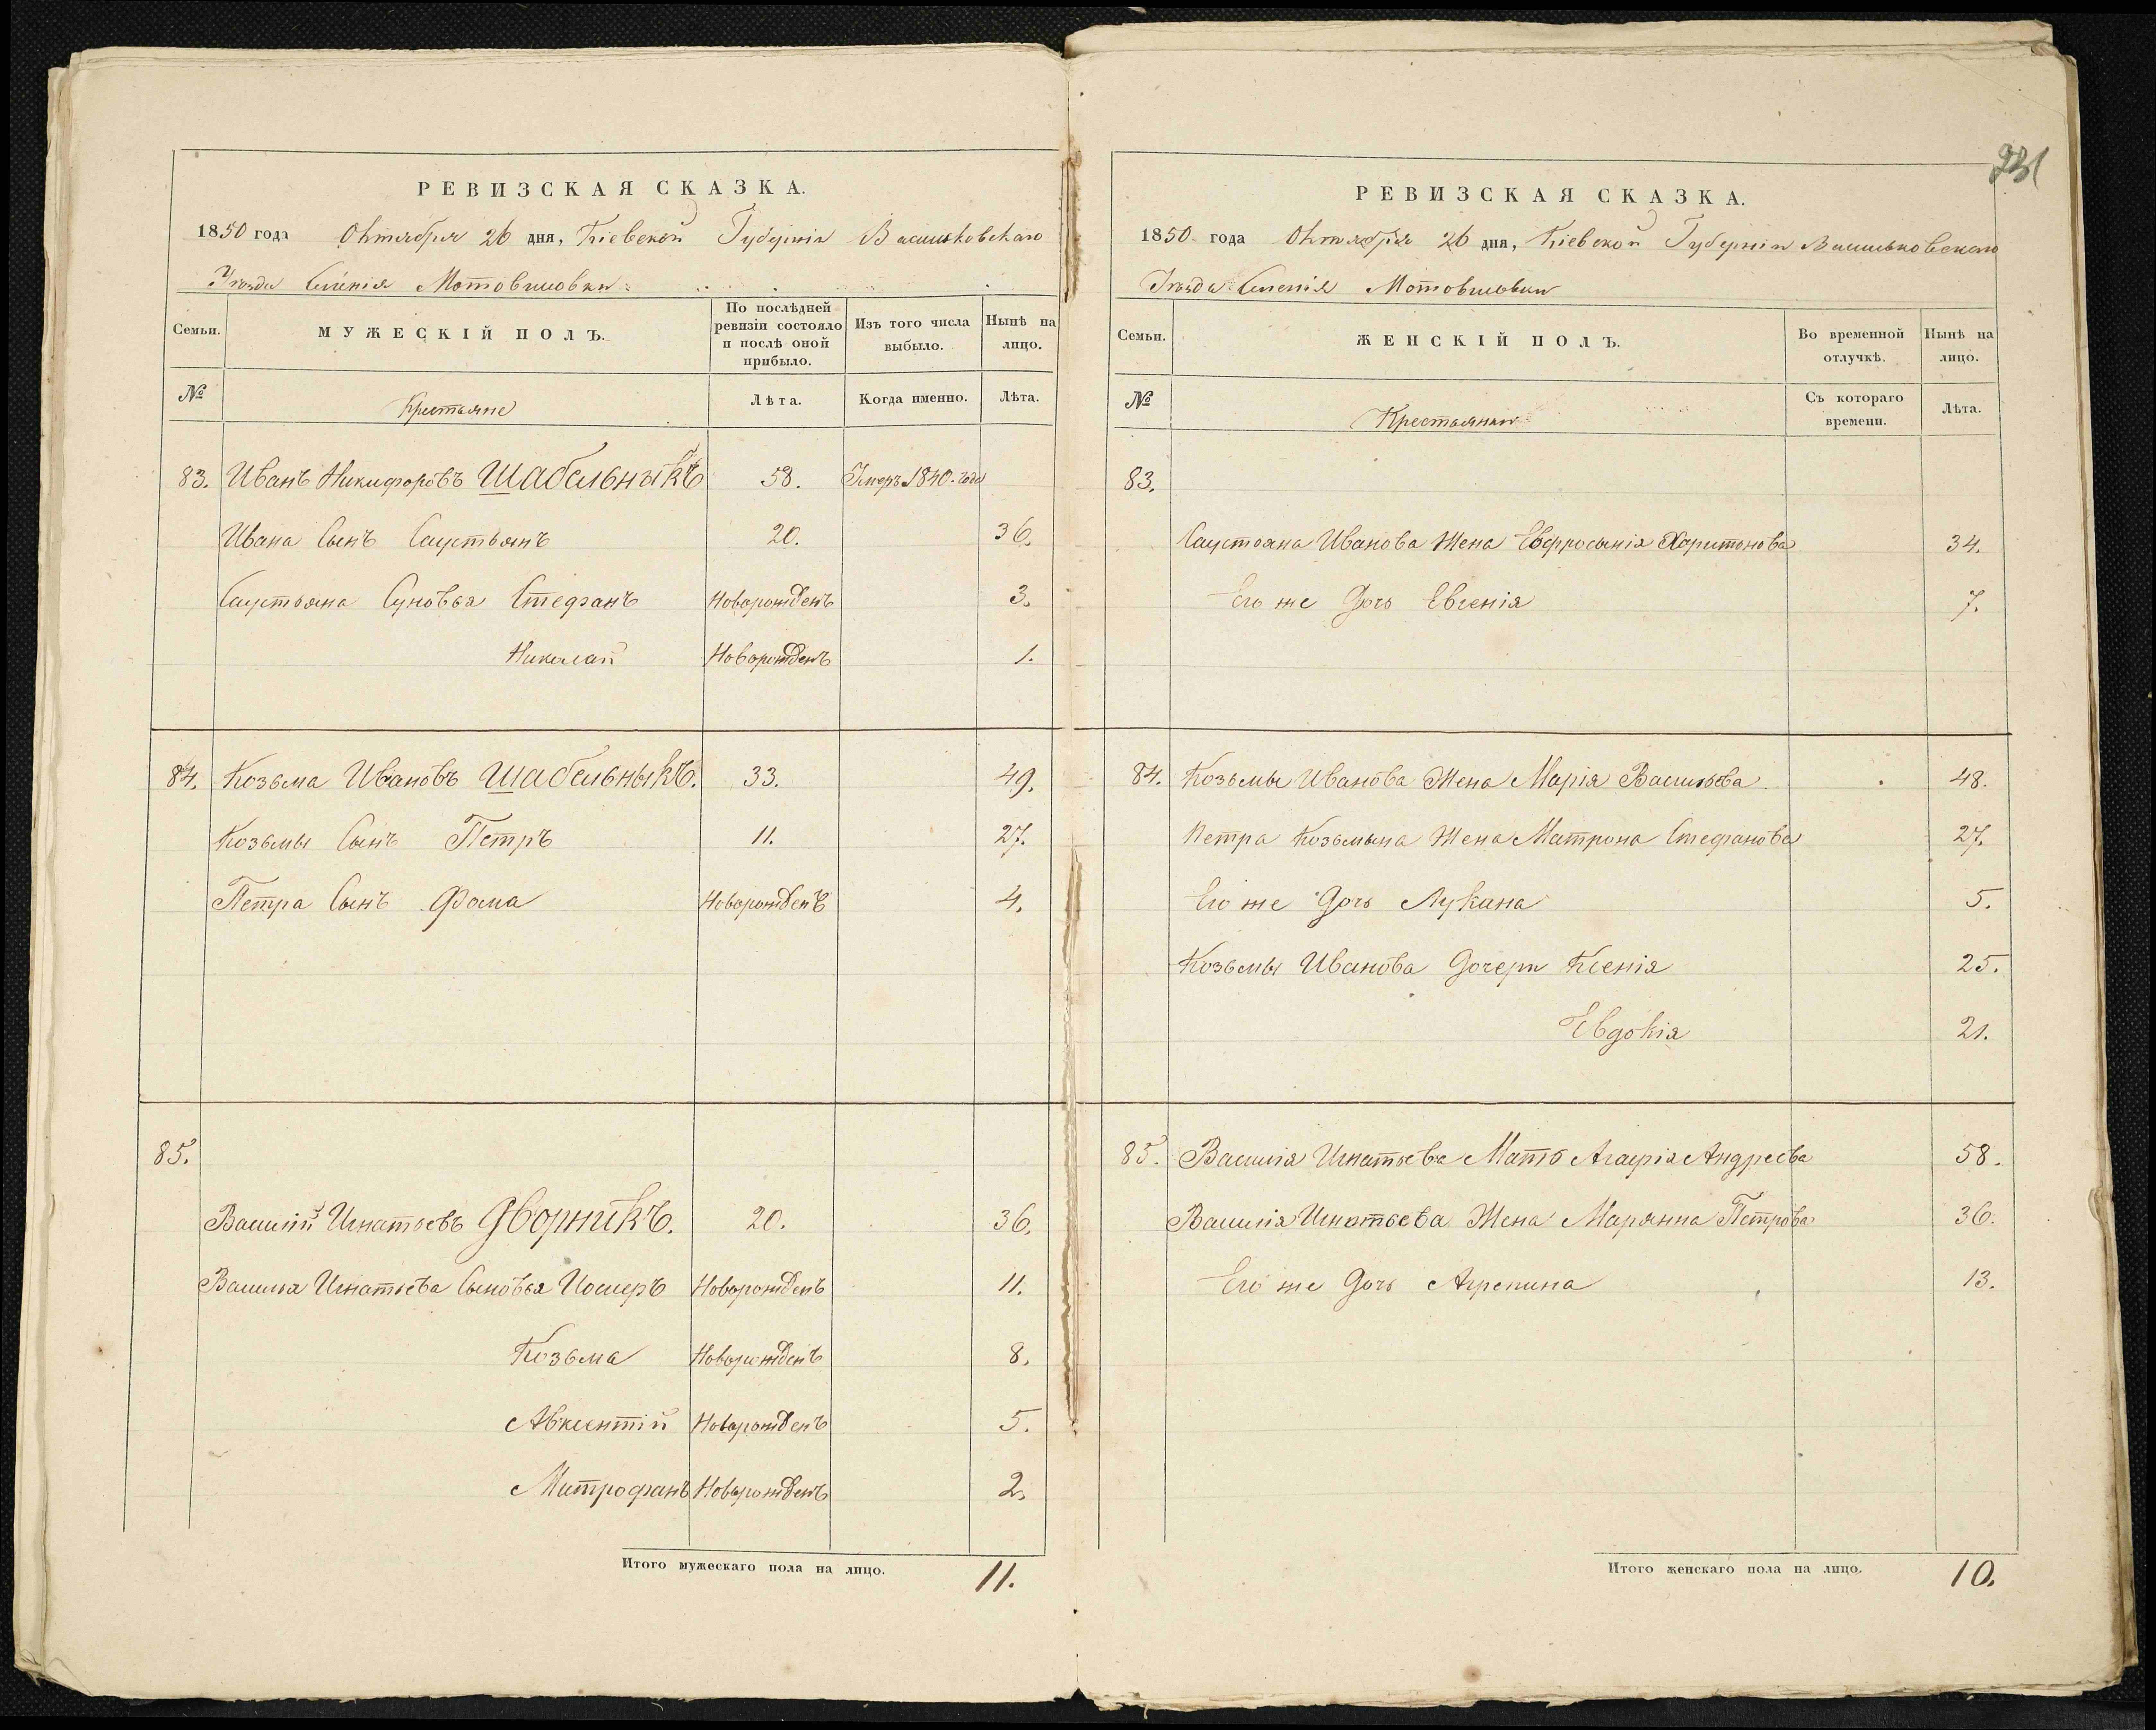 РЕВИЗСКАЯ СКАЗКА.
1850 года Октября 26 дня, Кіевской Губерніи Васильковскаго
Уѣзда Имѣнія Мотовиловки
Семьи. МУЖЕСКІЙ ПОЛЪ. По послѣдней ревизіи состояло и послѣ оной прибыло. Изъ того числа выбыло. Нынѣ на лицо.
№ Крестьяне Лѣта. Когда именно. Лѣта.
83. Иванъ Никифоровъ Шабельныкъ 58. Умеръ 1840 года
Ивана Сынъ Саустьянъ 20. 36.
Саустьяна Суновья Стефанъ Новорожденъ 3.
Николай Новорожденъ 1.
84. Козьма Ивановъ Шабельныкъ. 33. 49.
Козьмы Сынъ Петръ 11. 27.
Петра Сынъ Фома Новорожденъ 4.
85.
Василій Игнатьевъ Дворникъ. 20. 36.
Василия Игнатьева Сыновья Иосифъ Новорожденъ 11.
Козьма Новорожденъ 8.
Авксентій Новорожденъ 5.
Митрофанъ Новорожденъ 2.
Итого мужескаго пола на лицо. 11.
231
РЕВИЗСКАЯ СКАЗКА.
1850 года Октября 26 дня, Кіевской Губерніи Васильковскаго
Уѣзда Имѣнія Мотовиловки
Семьи. ЖЕНСКІЙ ПОЛЪ. Во временной отлучкѣ. Нынѣ на лицо.
№ Крестьянки Съ котораго времени. Лѣта.
83.
Саустьяна Иванова Жена Евфросынія Харитонова 34.
Его же Дочь Евгенія 7.
84. Козьмы Иванова Жена Марія Васильева 48.
Петра Козьмына Жена Матрона Стефанова 27.
Его же Дочь Лукина 5.
Козьмы Иванова Дочери Ксенія 25.
Евдокія 21.
85. Василія Игнатьева Мать Агафія Андреева 58.
Василія Игнатьева Жена Марянна Петрова 36.
Его же Дочь Агрепина 13.
Итого женскаго пола на лицо. 10.